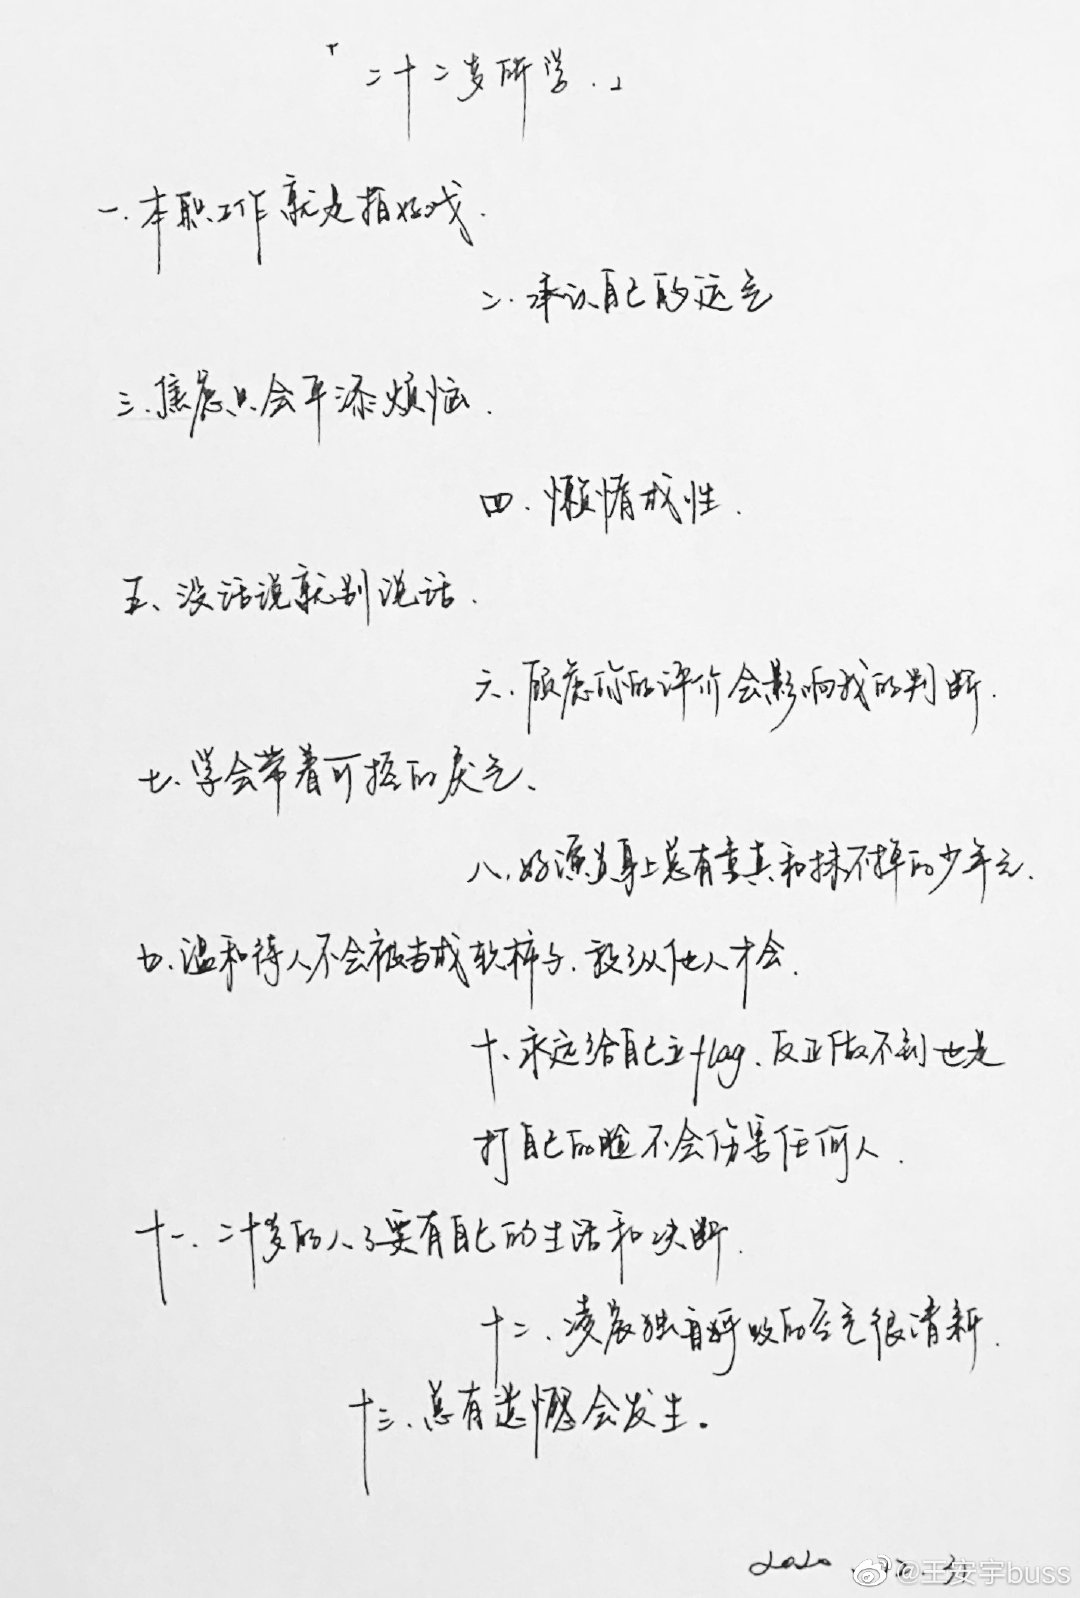 「二十二岁所学.」
一.本职工作就是拍好戏.
二.承认自己的运气
三.焦虑只会平添烦恼.
四.懒惰成性.
五、没话说就别说话.
六.顾虑你的评价会影响我的判断.
七.学会带着可控的戾气、
八.好演员身上总有童真和抹不掉的少年气.
九.温和待人不会被当成软柿子.放纵他人才会.
十、永远给自己立flag、反正做不到也是
打自己的脸不会伤害任何人.
十一、二十岁的人了要有自己的生活和决断.
十二、凌晨独自呼吸的空气很清新.
十三、总有遗憾会发生。
2020.12.31
@王安宇buss